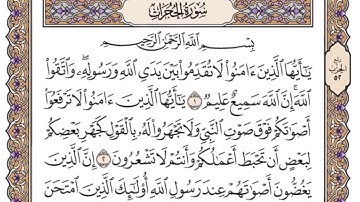 سُورَةُ الحُجُرَاتِ
بِسْمِ اللَّهِ الرَّحْمَٰنِ الرَّحِيمِ
يَٰٓأَيُّهَا ٱلَّذِينَ ءَامَنُوا۟ لَا تُقَدِّمُوا۟ بَيْنَ يَدَىِ ٱللَّهِ وَرَسُولِهِۦ ۖ وَٱتَّقُوا۟
ٱللَّهَ ۚ إِنَّ ٱللَّهَ سَمِيعٌ عَلِيمٌ ١ يَٰٓأَيُّهَا ٱلَّذِينَ ءَامَنُوا۟ لَا تَرْفَعُوٓا۟
أَصْوَٰتَكُمْ فَوْقَ صَوْتِ ٱلنَّبِىِّ وَلَا تَجْهَرُوا۟ لَهُۥ بِٱلْقَوْلِ كَجَهْرِ بَعْضِكُمْ
لِبَعْضٍ أَن تَحْبَطَ أَعْمَٰلُكُمْ وَأَنتُمْ لَا تَشْعُرُونَ ٢ إِنَّ ٱلَّذِينَ
يَغُضُّونَ أَصْوَٰتَهُمْ عِندَ رَسُولِ ٱللَّهِ أُو۟لَٰٓئِكَ ٱلَّذِينَ ٱمْتَحَنَ